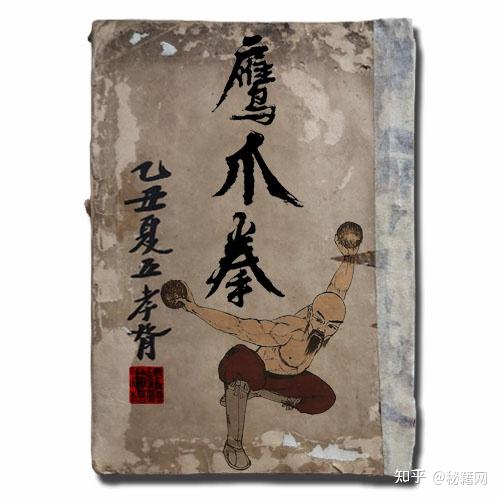 鹰爪拳
乙丑夏五
知乎 @秘籍网